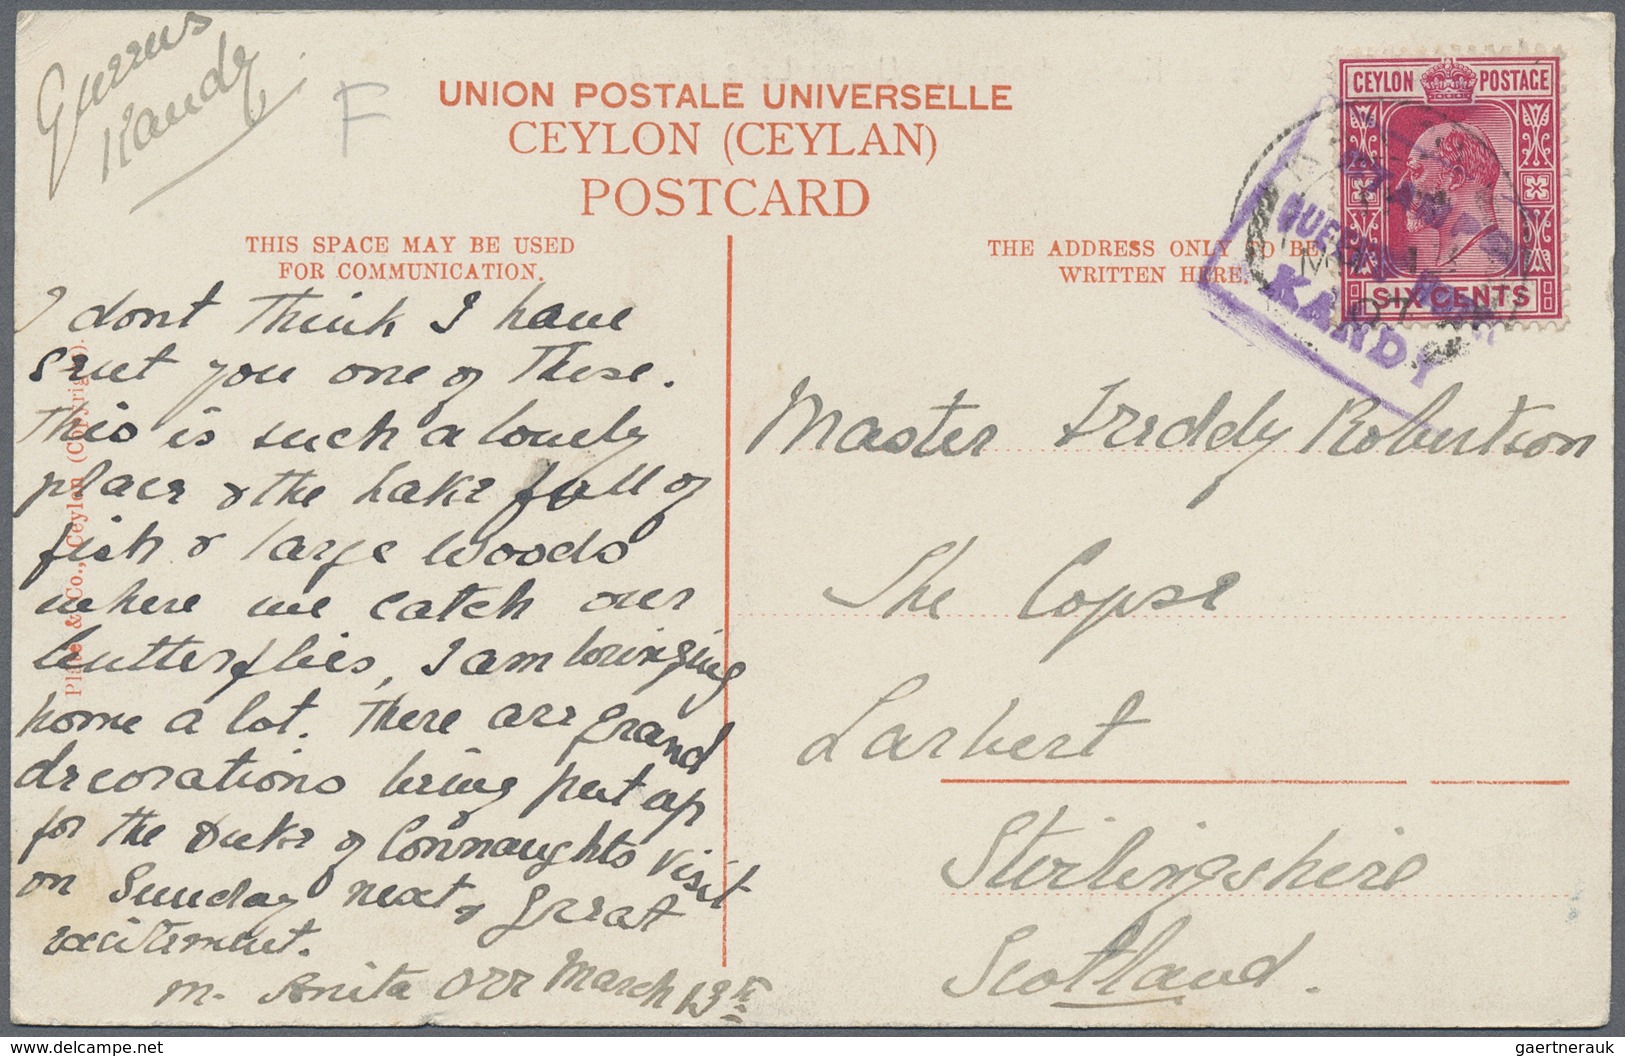 Queens
Kandy
F
UNION POSTALE UNIVERSELLE
CEYLON (CEYLAN)
POSTCARD
THIS SPACE MAY BE USED
FOR COMMUNICATION.
THE ADDRESS ONLY TO BE
WRITTEN HERE.
CEYLON POSTAGE
SIX CENTS
QUEEN'S HOTEL
KANDY
07
Plâté & Co., Ceylon (Copyright).
I dont think I have
sent you one of these.
This is such a lovely
place & the lake full of
fish & large woods
where we catch our
butterflies, I am bringing
home a lot. There are grand
decorations being put up
for the Duke of Connaughts visit
on Sunday next & great
excitement.
M. Anita Orr March 13th
Master Freddy Robertson
The Copse
Larbert
Stirlingshire
Scotland.
gaertnerauk